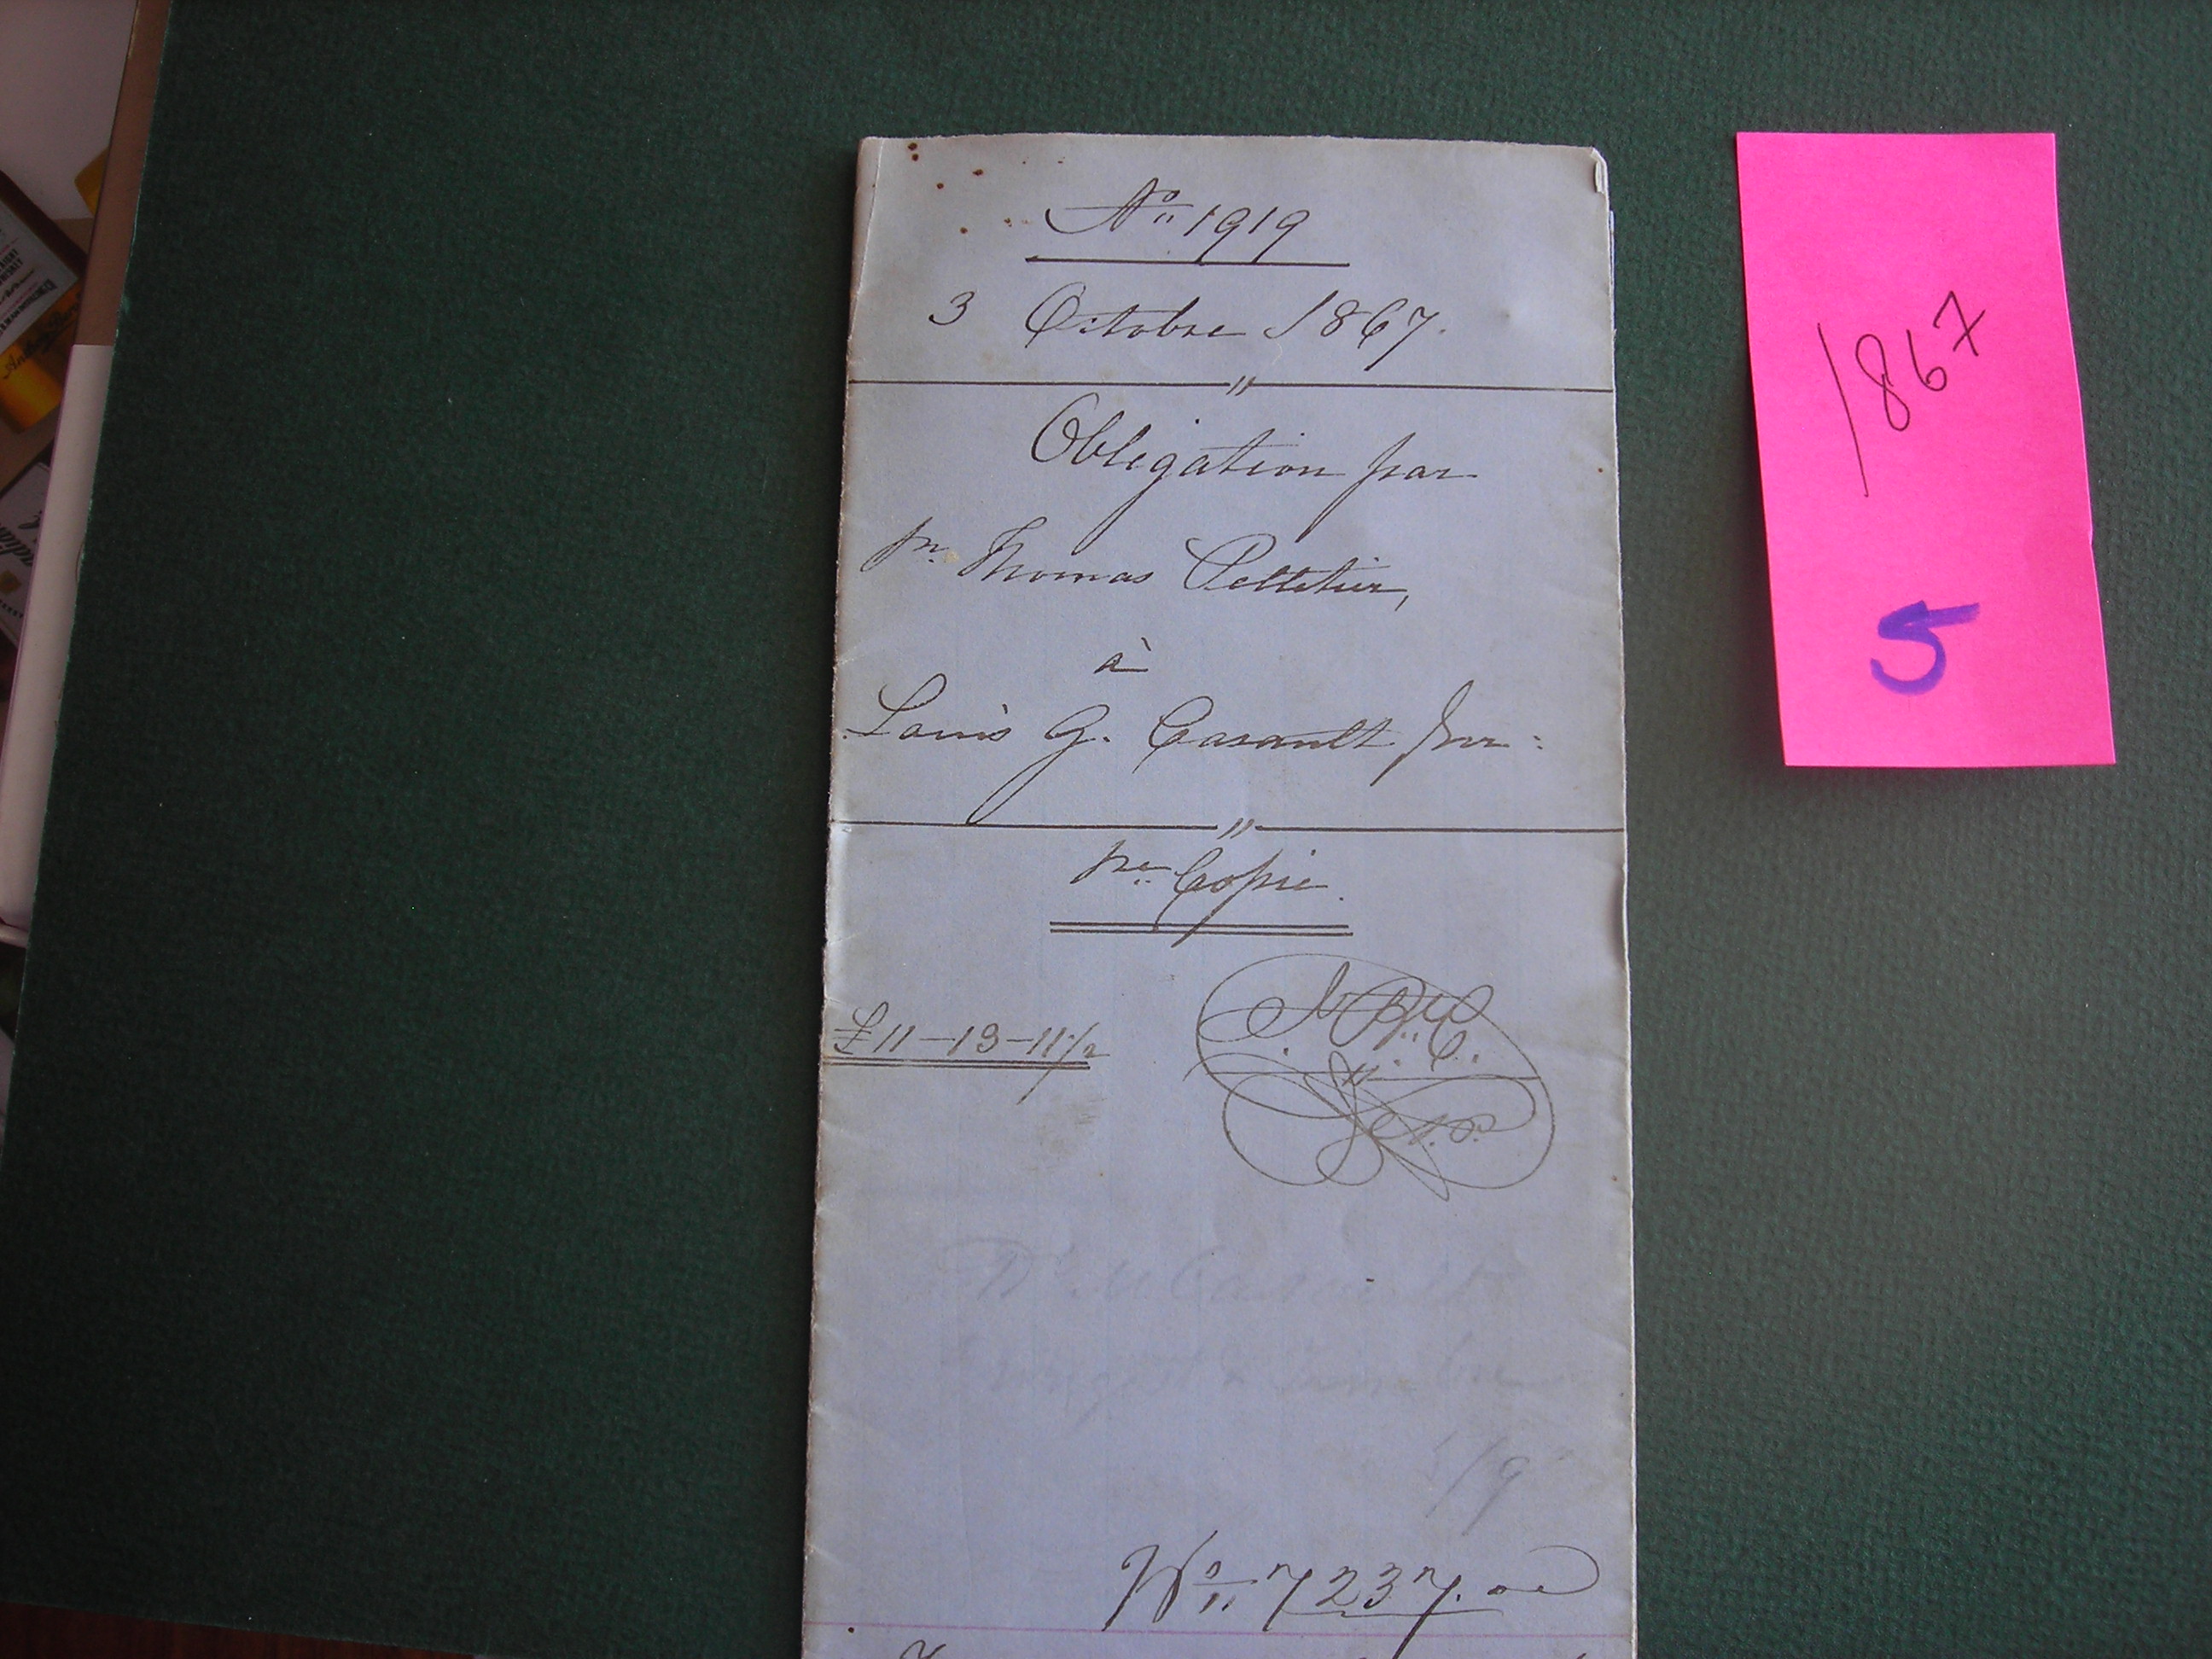 No 1919
3 Octobre 1867.
Obligation par
Thomas Pelletier,
à
Louis G. Casault
pre Copie.
£11-13-11½
No 7237.
1867
5